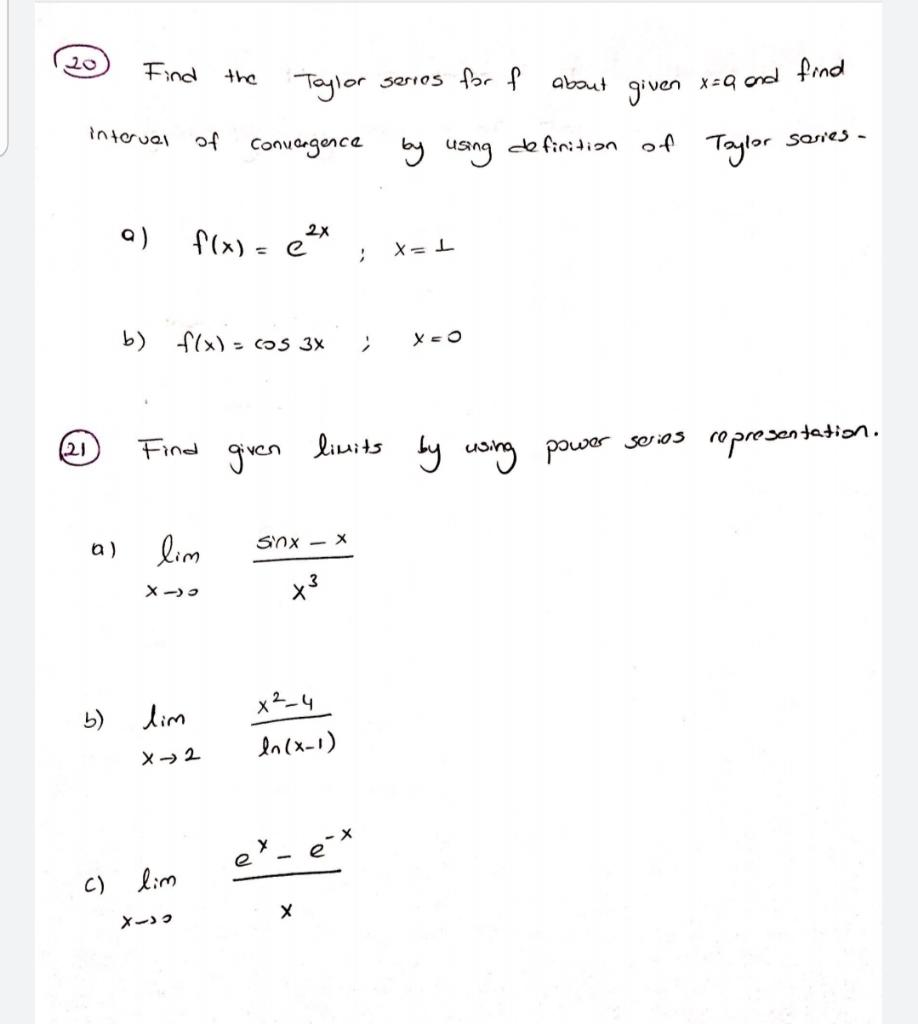 20 Find the Taylor series for f about given x=a and find
interval of convergence by using definition of Taylor series.
a) f(x) = e^2x ; x = 1
b) f(x) = cos 3x ; x = 0
21 Find given limits by using power series representation.
a) lim x→0 sinx - x / x^3
b) lim x→2 x^2-4 / ln(x-1)
c) lim x→0 e^x - e^-x / x